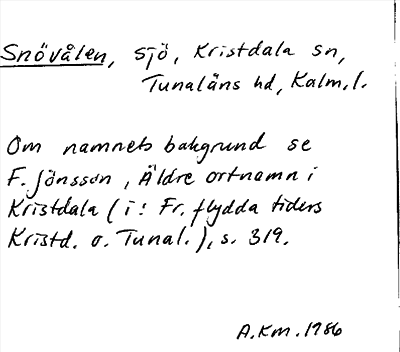 Snövålen, sjö, Kristdala sn,
Tunaläns hd, Kalm. l.
Om namnets bakgrund se
F. Jönsson, Äldre ortnamn i
Kristdala (i: Fr. flydda tiders
Kristd. o. Tunal.), s. 319.
A.Km. 1986